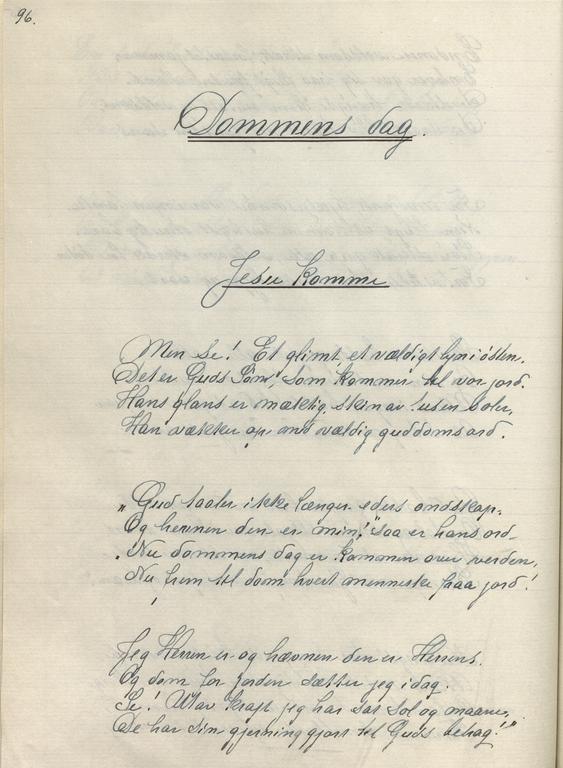 96.
Dommens dag.
Jesu komme
Men se! Et glimt, et vældigt lyn i østen.
Det er Guds Søn, som kommer til vor jord.
Hans glans er mæktig skin av tusen soler,
Han vækker op med vældig guddomsord.
"Gud taaler ikke længer eders ondskap.
Og hevnen den er min!" saa er hans ord.
"Nu dommens dag er kommen over verden,
Nu frem til dom hvert menneske paa jord!
Jeg Herren er og hævnen den er Herrens.
Og dom for Jorden sætter jeg idag.
Se! Utav kraft jeg har sat sol og maane,
De har sin gjerning gjort til Guds behag!"